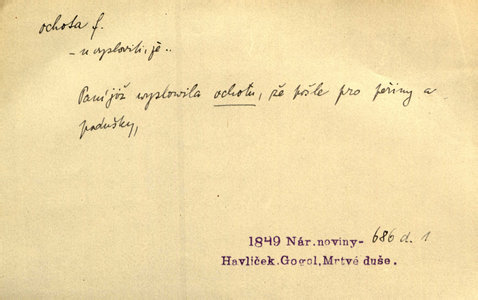 ochota f.
- u vyslovili, jě..
Paní již wyslowila ochotu, že pošle pro peřiny a
podušky,
1849 Nár.noviny- 686 d. 1
Havlíček.Gogol,Mrtvé duše.